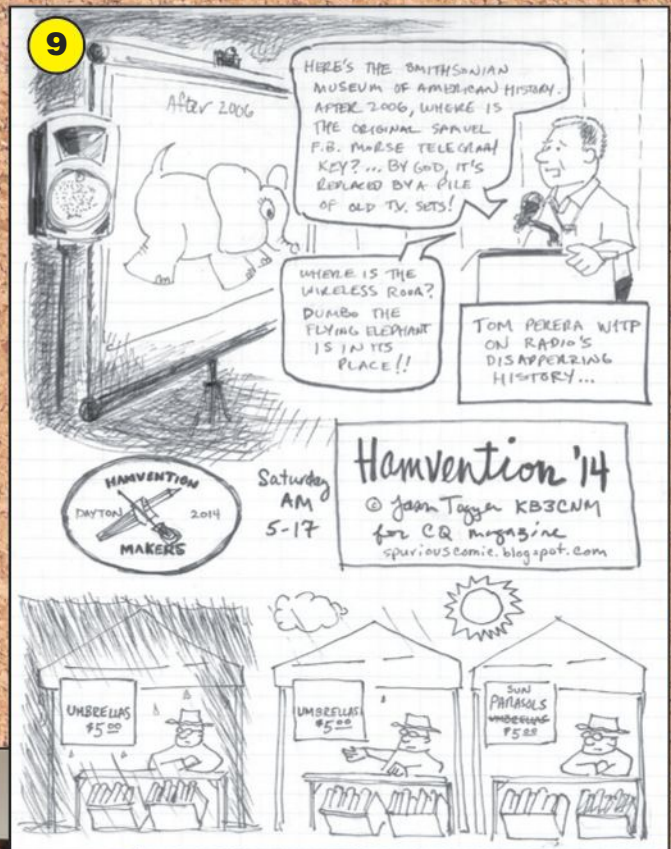 9
After 2006
HERE'S THE SMITHSONIAN
MUSEUM OF AMERICAN HISTORY.
AFTER 2006, WHERE IS
THE ORIGINAL SAMUEL
F.B. MORSE TELEGRAPH
KEY?... BY GOD, IT'S
REPLACED BY A PILE
OF OLD T.V. SETS!
WHERE IS THE
WIRELESS ROOM?
DUMBO THE
FLYING ELEPHANT
IS IN ITS
PLACE!!
TOM PERERA W1TP
ON RADIO'S
DISAPPEARING
HISTORY...
HAMVENTION
DAYTON 2014
MAKERS
Saturday
AM
5-17
Hamvention '14
© Jason Togyer KB3CNM
for CQ magazine
spuriouscomic.blogspot.com
UMBRELLAS
$5.00
UMBRELLAS
$5.00
SUN
PARASOLS
UMBRELLAS
$5.00